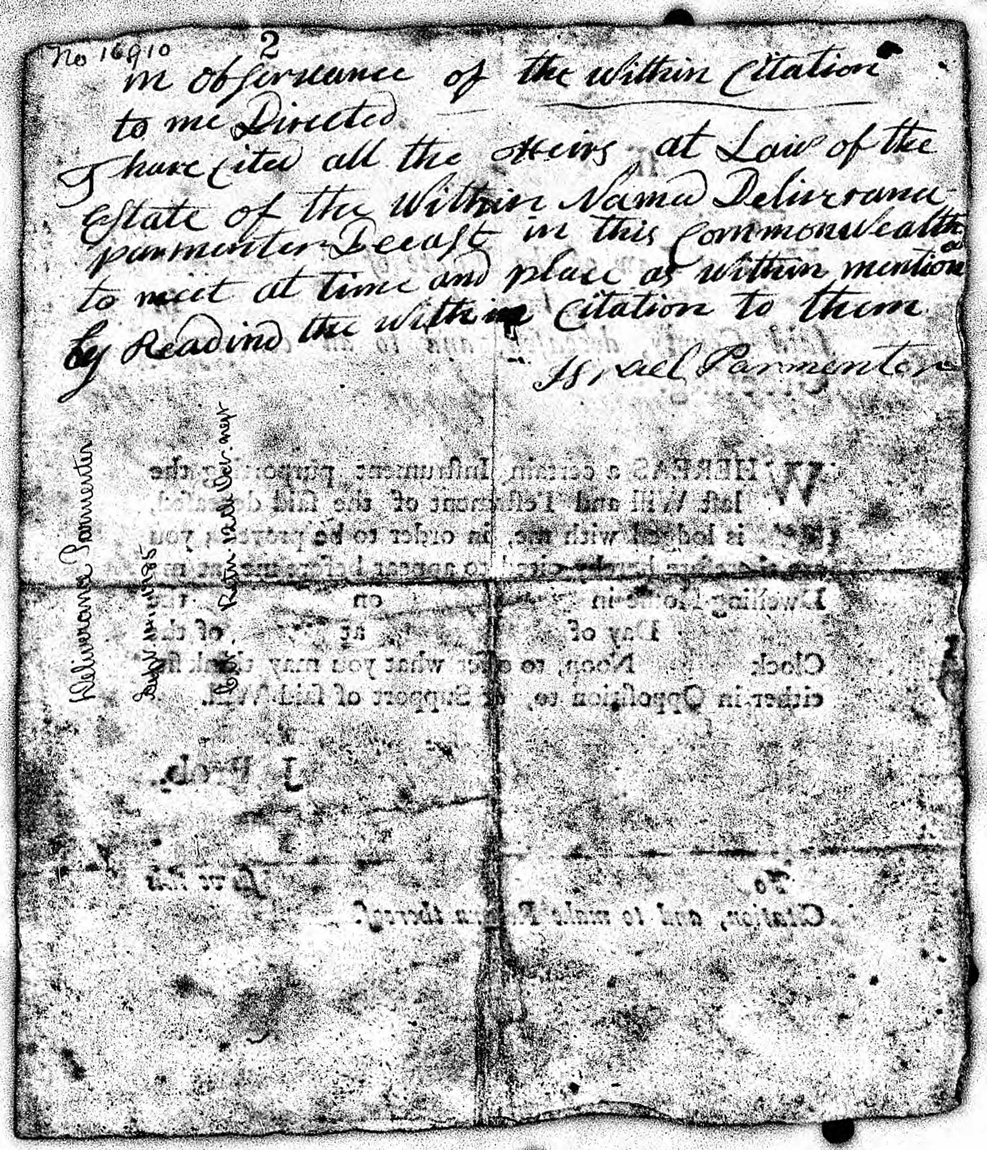 No 16910
2
in obſerveance of the within Citation
to me Directed
I have Cited all the Heirs at Law of the
Estate of the Within Named Deliverance
parmenter Deceaſt in this Commonwealth
to meet at time and place as within mentioned
by Readind the within Citation to them
Israel Parmenter
Deliverance Parmenter
WHEREAS a certain Inſtrument purporting the
laſt Will and Teſtament of the ſaid deceaſed,
is lodged with me, in order to be proved; you
are therefore hereby cited to appear before me at my
Dwelling-Houſe in on the
Day of at of the
Clock Noon, to offer what you may think fit
either in Oppoſition to, or Support of ſaid Will.
J. Prob.
To ſerve this
Citation, and to make Return thereof.